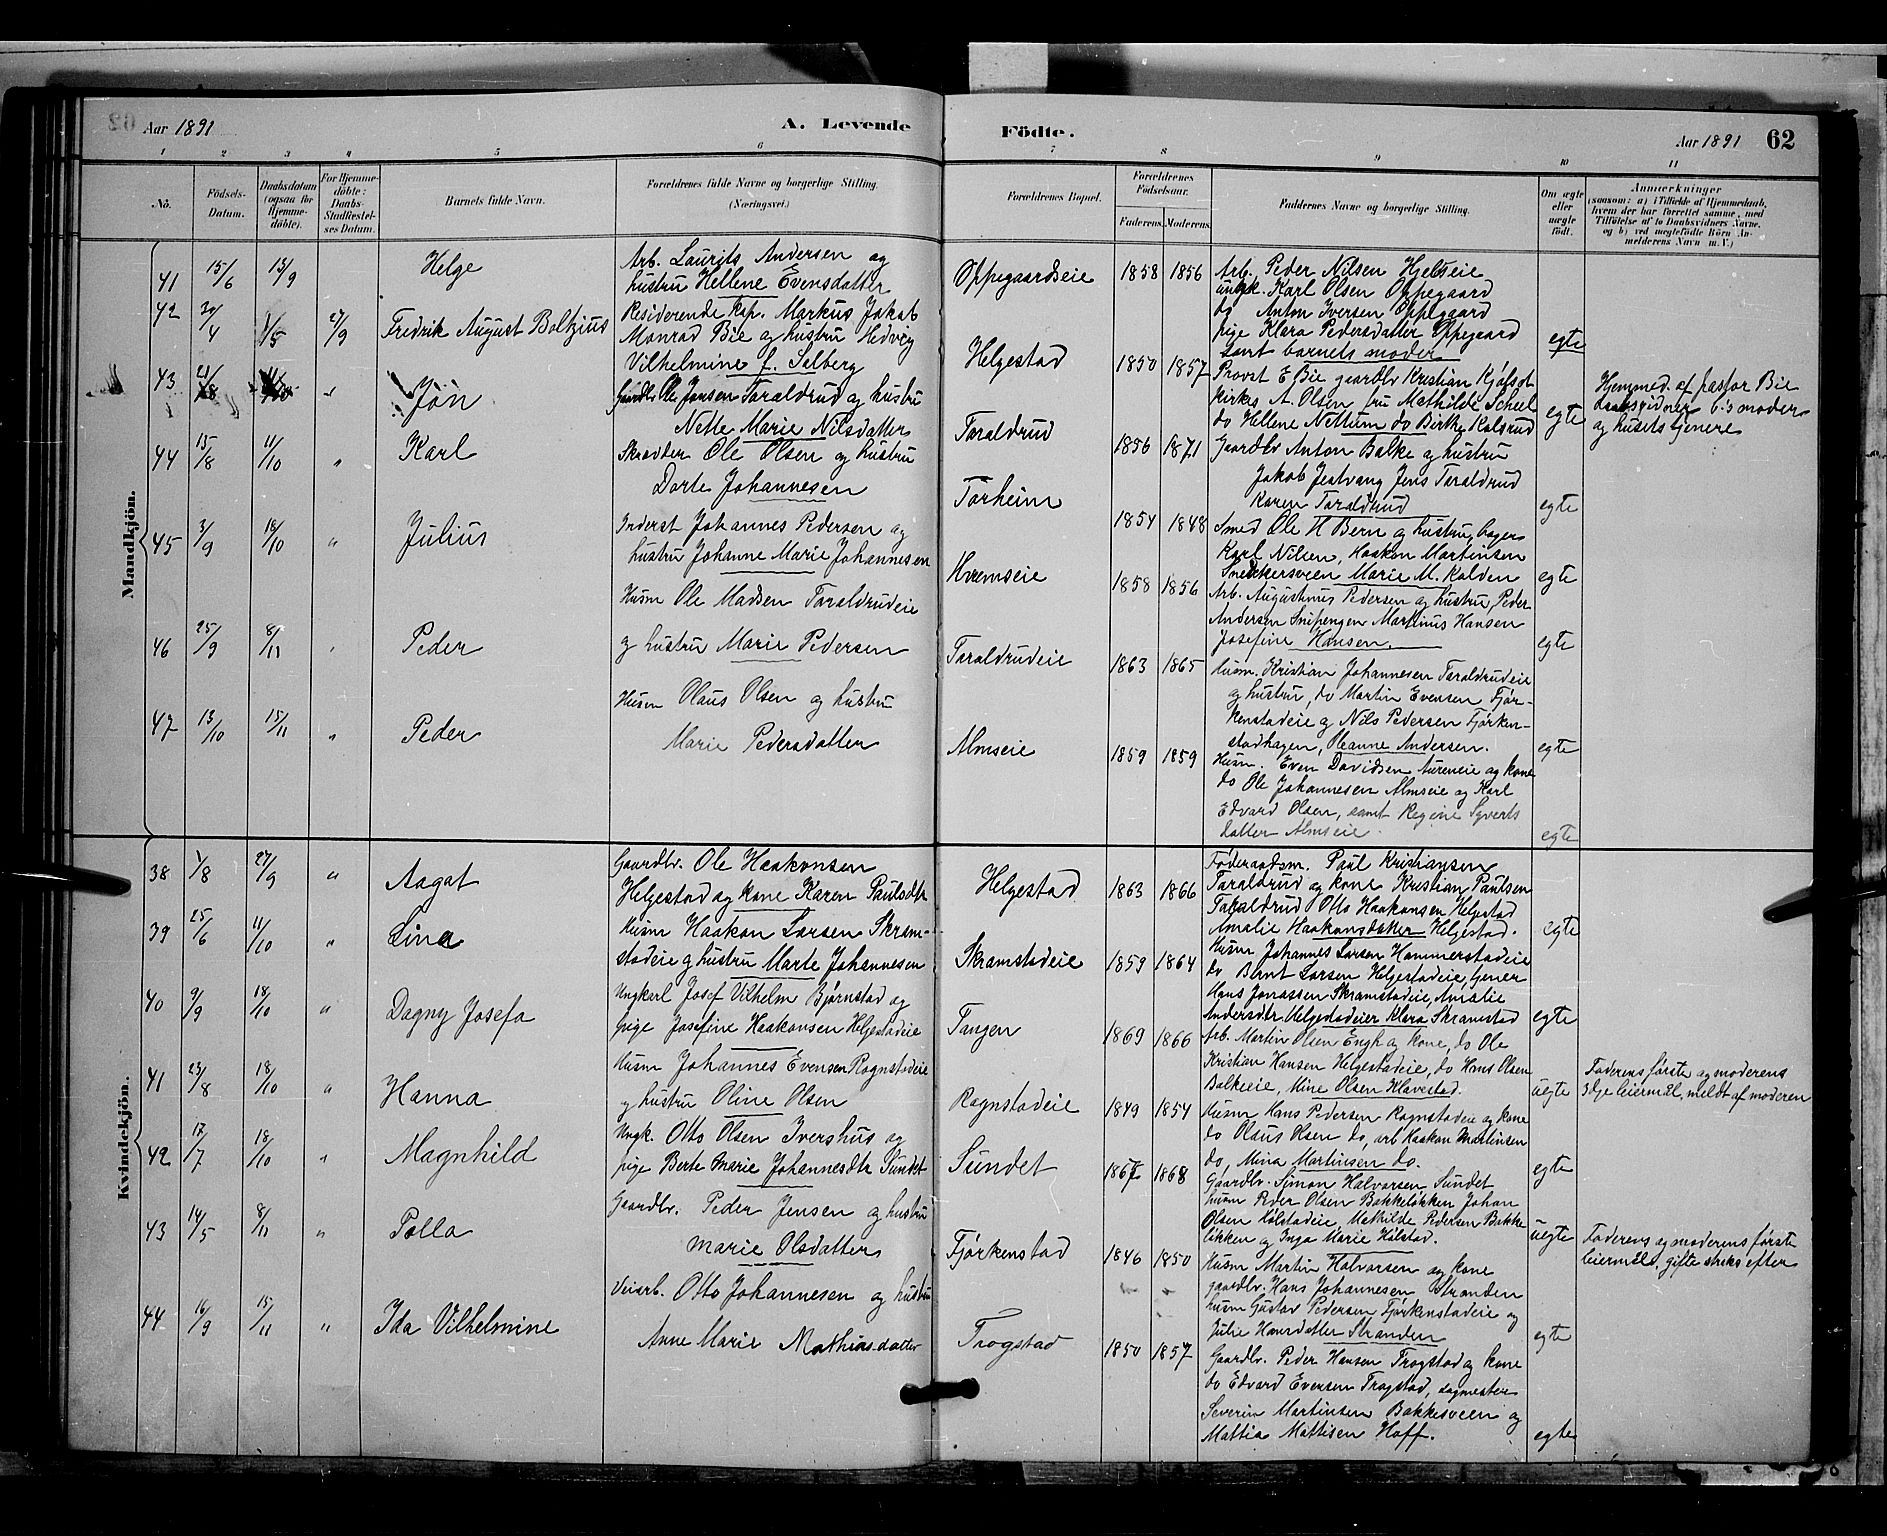 Aar 1891
A. Levende
Födte.
Aar 1891
62
1 2 3 4 5 6 7 8 9 10 11
No.
Födsels-
Datum.
Daabsdatum
(ogsaa for
Hjemme-
döbte).
For Hjemme-
döbte:
Daabs-
Stadfæstel-
ses Datum.
Barnets fulde Navn.
Forældrenes fulde Navne og borgerlige Stilling.
(Næringsvei.)
Forældrenes Bopæl.
Forældrenes
Födselsaar.
Faderens. Moderens.
Faddernes Navne og borgerlige Stilling.
Om ægte
eller
uægte
födt.
Anmærkninger
(saasom: a) i Tilfælde af Hjemmedaab,
hvem der har forrettet samme, med
Tilföielse af to Daabsvidners Navne.
og b) ved uegtefödte Börn An-
melderens Navn m. V.)
Mandkjön.
41 15/6 13/9 Helge
Arb. Laurits Andersen og
hustru Hellene Evensdatter
Oppegaardseie 1858 1856
Arb. Peder Nilsen Hjelseie
ungk. Karl Olsen Oppegaard
do Anton Iversen Oppegaard
pige Klara Pedersdatter Oppegaard
samt barnets moder
egte
42 4 27/9 Fredrik August Boltzius
Residerende Kap. Markus Jakob
Monrad Bie og hustru Hedvig
Vilhelmine f. Salberg
Helgestad 1850 1857
Provst E Bie gaardbr Kristian
A. Olsen, fru Mathilde Scheel
do Hellene Nettum do Birthe Kalsrud
egte
Hjemmed. af pastor Bie
b's moder
og husets tjenere
43 Jon
Gaardbr. Ole Jonsen Taraldrud og hustru
Nette Marie Nilsdatter
Taraldrud 1856 1871
Gaardbr Anton Balke og hustru
Jakob Jestvang Jens Taraldrud
Karen Taraldrud
egte
44 15/8 11/10 " Karl
Skrædder Ole Olsen og hustru
Dorte Johannesen
Torheim 1854 1848
Smed Ole H Bern og hustru, bager
Karl Nilsen, Haakon Martinsen
Snekkersveen Marie M. Kalden
egte
45 3/9 18/10 " Julius
Inderst Johannes Pedersen og
hustru Johanne Marie Johannesen
Hremseie 1858 1856
Arb. Augustinus Pedersen og hustru, Peder
Andersen Snipengen Martinus Hansen
Josefine Hansen.
egte
46 25/9 8/11 Peder
Husm Ole Madsen Taraldrudeie
og hustru Marie Pedersen
Taraldrudeie 1863 1865
Husm. Kristian Johannesen Taraldrudeie
og hustru, do Martin Evensen Fjør-
kenstadeie og Nils Pedersen Fjørken-
stadhagen, Oleanne Andersen.
egte
47 13/10 15/11 " Peder
Husm Olaus Olsen og hustru
Marie Pedersdatter
Almseie 1859 1859
Husm. Even Davidsen Aureneie og kone
do Ole Johannesen Almseie og Karl
Edvard Olsen, samt Regine Syverts
datter Almseie.
egte
Kvindekjön.
38 1/8 27/9 " Aagot
Gaardbr. Ole Haakonsen
Helgestad og kone Karen Paulsdtr
Helgestad 1863 1866
Føderaadsm. Paul Kristiansen
Taraldrud og kone Kristian Paulsen
Taraldrud Otto Haakonsen Helgestad
Amalie Haakonsdatter Helgestad.
egte
39 25/6 11/10 " Lina
Husm Haakon Larsen Skram-
stadeie og hustru Marte Johannesen
Skramstadeie 1859 1864
Husm Johannes Larsen Hammerstadeie
do Bernt Larsen Helgestadeie, tjener
Hans Jonassen Skramstadeie, Amalie
Andersdtr Helgestadeie Klara Skramstad
egte
40 9/9 18/10 " Dagny Josefa
Ungkarl Josef Vilhelm Bjørnstad og
pige Josefine Haakonsen Helgestadeie
Tangen 1869 1866
Arb. Martin Olsen Engh og kone, do Ole
Kristian Hansen Helgestadeie, do Hans Olsen
Balkeeie, Mine Olsen Klavestad.
uegte
Faderens første og moderens
3dje leiermaal, meldt af moderen
41 23/8 18/10 " Hanna
Husm Johannes Evensen Rognstadeie
og hustru Oline Olsen
Rognstadeie 1849 1854
Husm Hans Pedersen Rognstadeie og kone
do Olaus Olsen do, arb Haakon Martinsen
do, Mina Martinsen do.
egte
42 17/7 18/10 " Magnhild
Ungk. Otto Olsen Ivershus og
pige Berte Marie Johannesdtr Sundet
Sundet 1867 1868
Gaardbr. Simon Halvorsen Sundet
husm Peder Olsen Bakkeløkken Johan
Olsen Hølstadeie, Mathilde Pedersen Bakke
løkken og Inga Marie Hølstad.
uegte
Faderens og moderens første
leiermaal, gifte straks efter
43 14/5 8/11 " Palla
Gaardbr. Peder Jensen og hustru
Marie Olsdatter
Fjørkenstad 1846 1850
Husm Martin Halvorsen og kone
gaardbr. Hans Johannesen Stranden
husm Gustav Pedersen Fjørkenstadeie og
Julie Hansdatter Stranden
egte
44 16/9 15/11 " Ida Vilhelmine
Veiarb. Otto Johannesen og hustru
Anne Marie Mathiasdatter
Trogstad 1850 1857
Gaardbr. Peder Hansen Trogstad og kone
do Edvard Eversen Trogstad, sagmester
Severin Martinsen Bakkesveen og
Mattia Mattisen Hoff.
egte